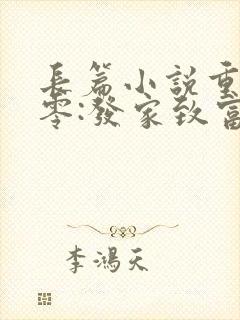 長篇小說重
零:發家致富
李鴻天